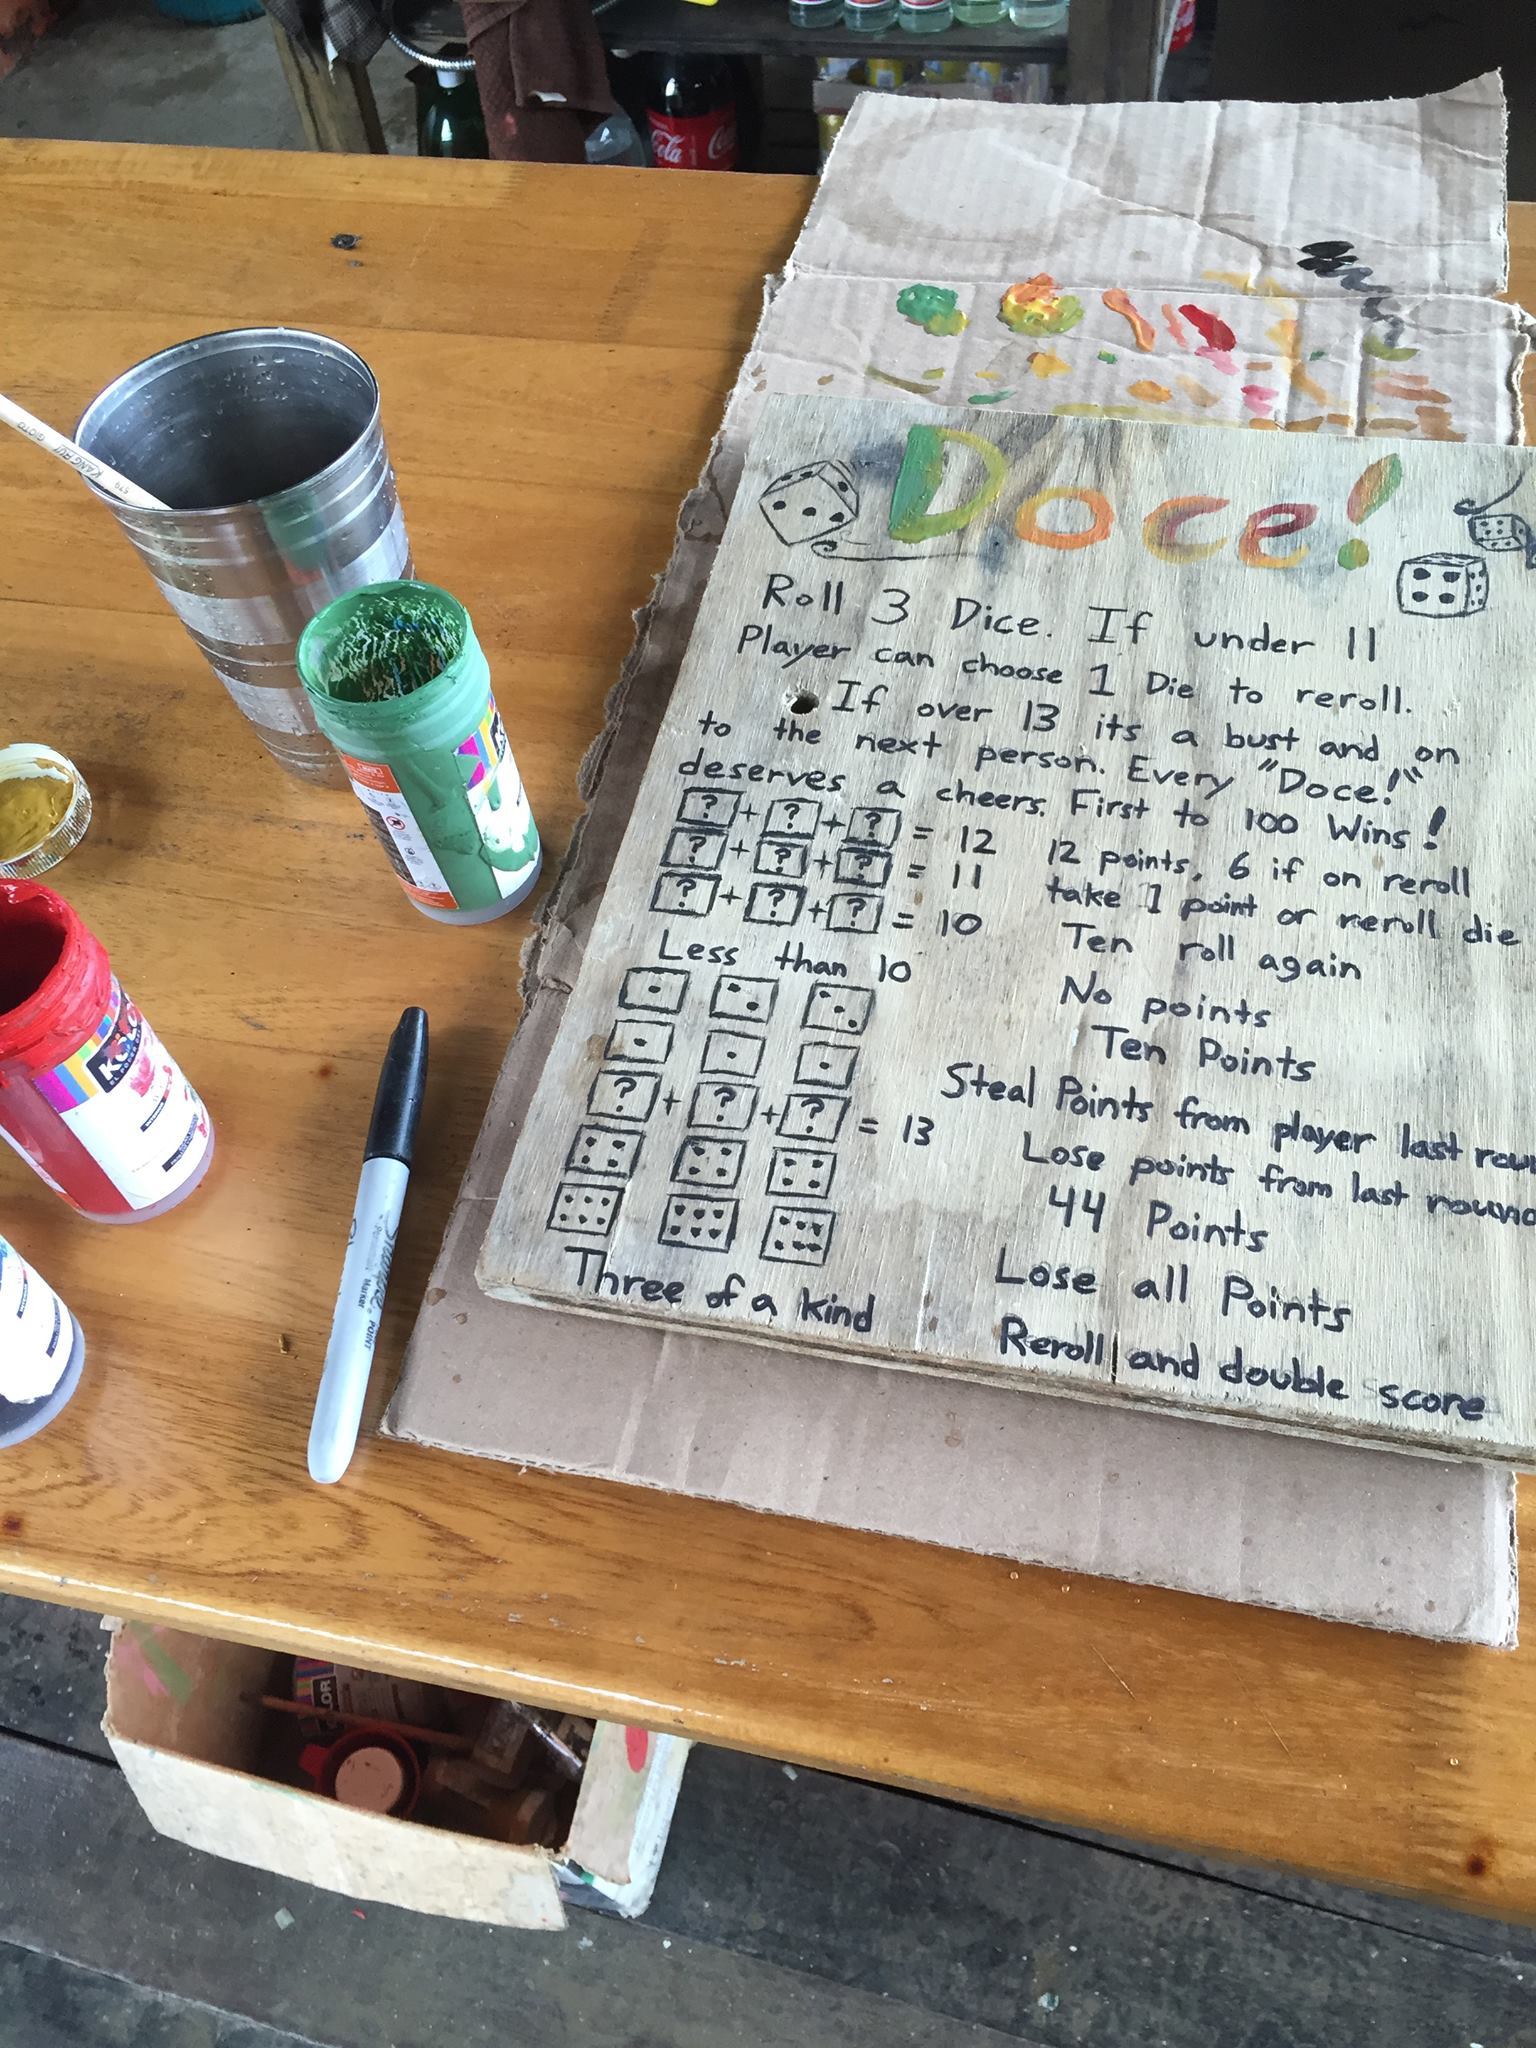 Cola
Coca
KANG RUI GIOTO 579
Doce!
Roll 3 Dice. If under 11
Player can choose 1 Die to reroll.
If over 13 its a bust and on
to the next person. Every "Doce!"
deserves a cheers. First to 100 Wins!
? + ? + ? = 12 12 points, 6 if on reroll
? + ? + ? = 11 take 1 point or reroll die
? + ? + ? = 10 Ten roll again
Less than 10 No points
Ten Points
Steal Points from player last roun
? + ? + ? = 13 Lose points from last round
44 Points
Lose all Points
Three of a kind Reroll and double score
Sharpie
PERMANENT MARKER
POINT